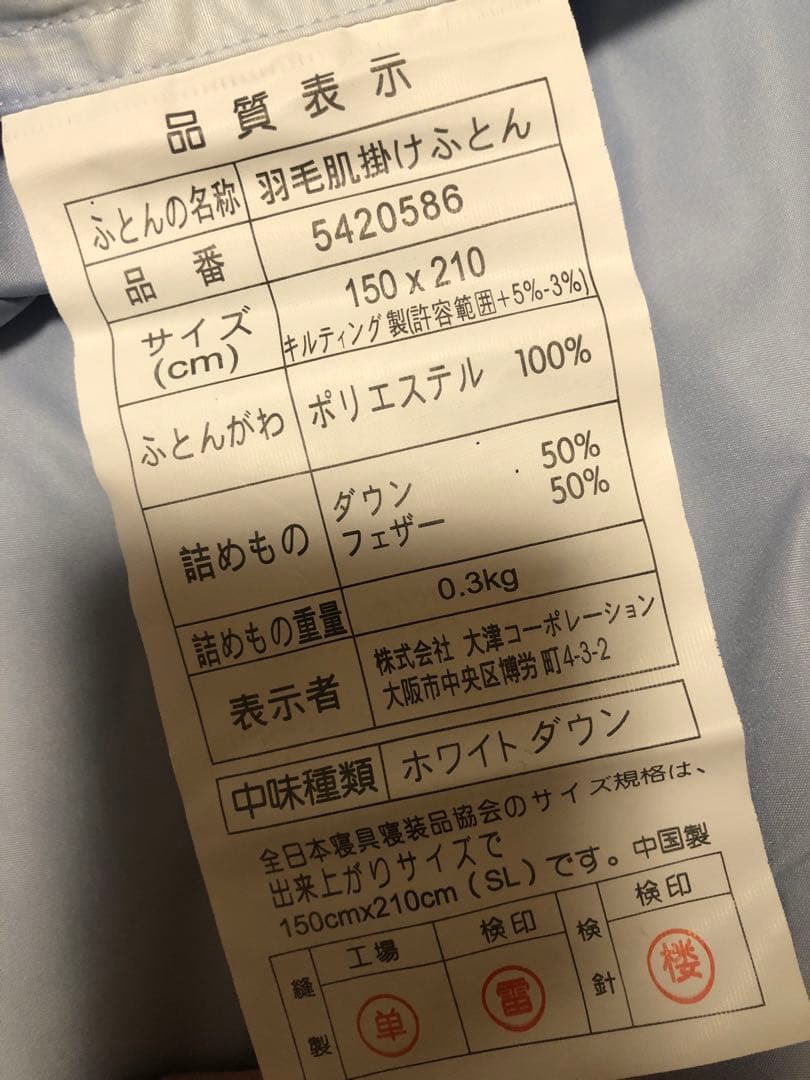 品質表示
ふとんの名称 羽毛肌掛けふとん
品番 5420586
サイズ(cm) 150 x 210
キルティング製(許容範囲+5%-3%)
ふとんがわ ポリエステル 100%
詰めもの ダウン 50%
フェザー 50%
詰めもの重量 0.3kg
表示者 株式会社 大津コーポレーション
大阪市中央区博労町4-3-2
中味種類 ホワイトダウン
全日本寝具寝装品協会のサイズ規格は、
出来上がりサイズで
150cmx210cm(SL)です。中国製
縫製 工場 検印 検針 検印
单 雷 楼